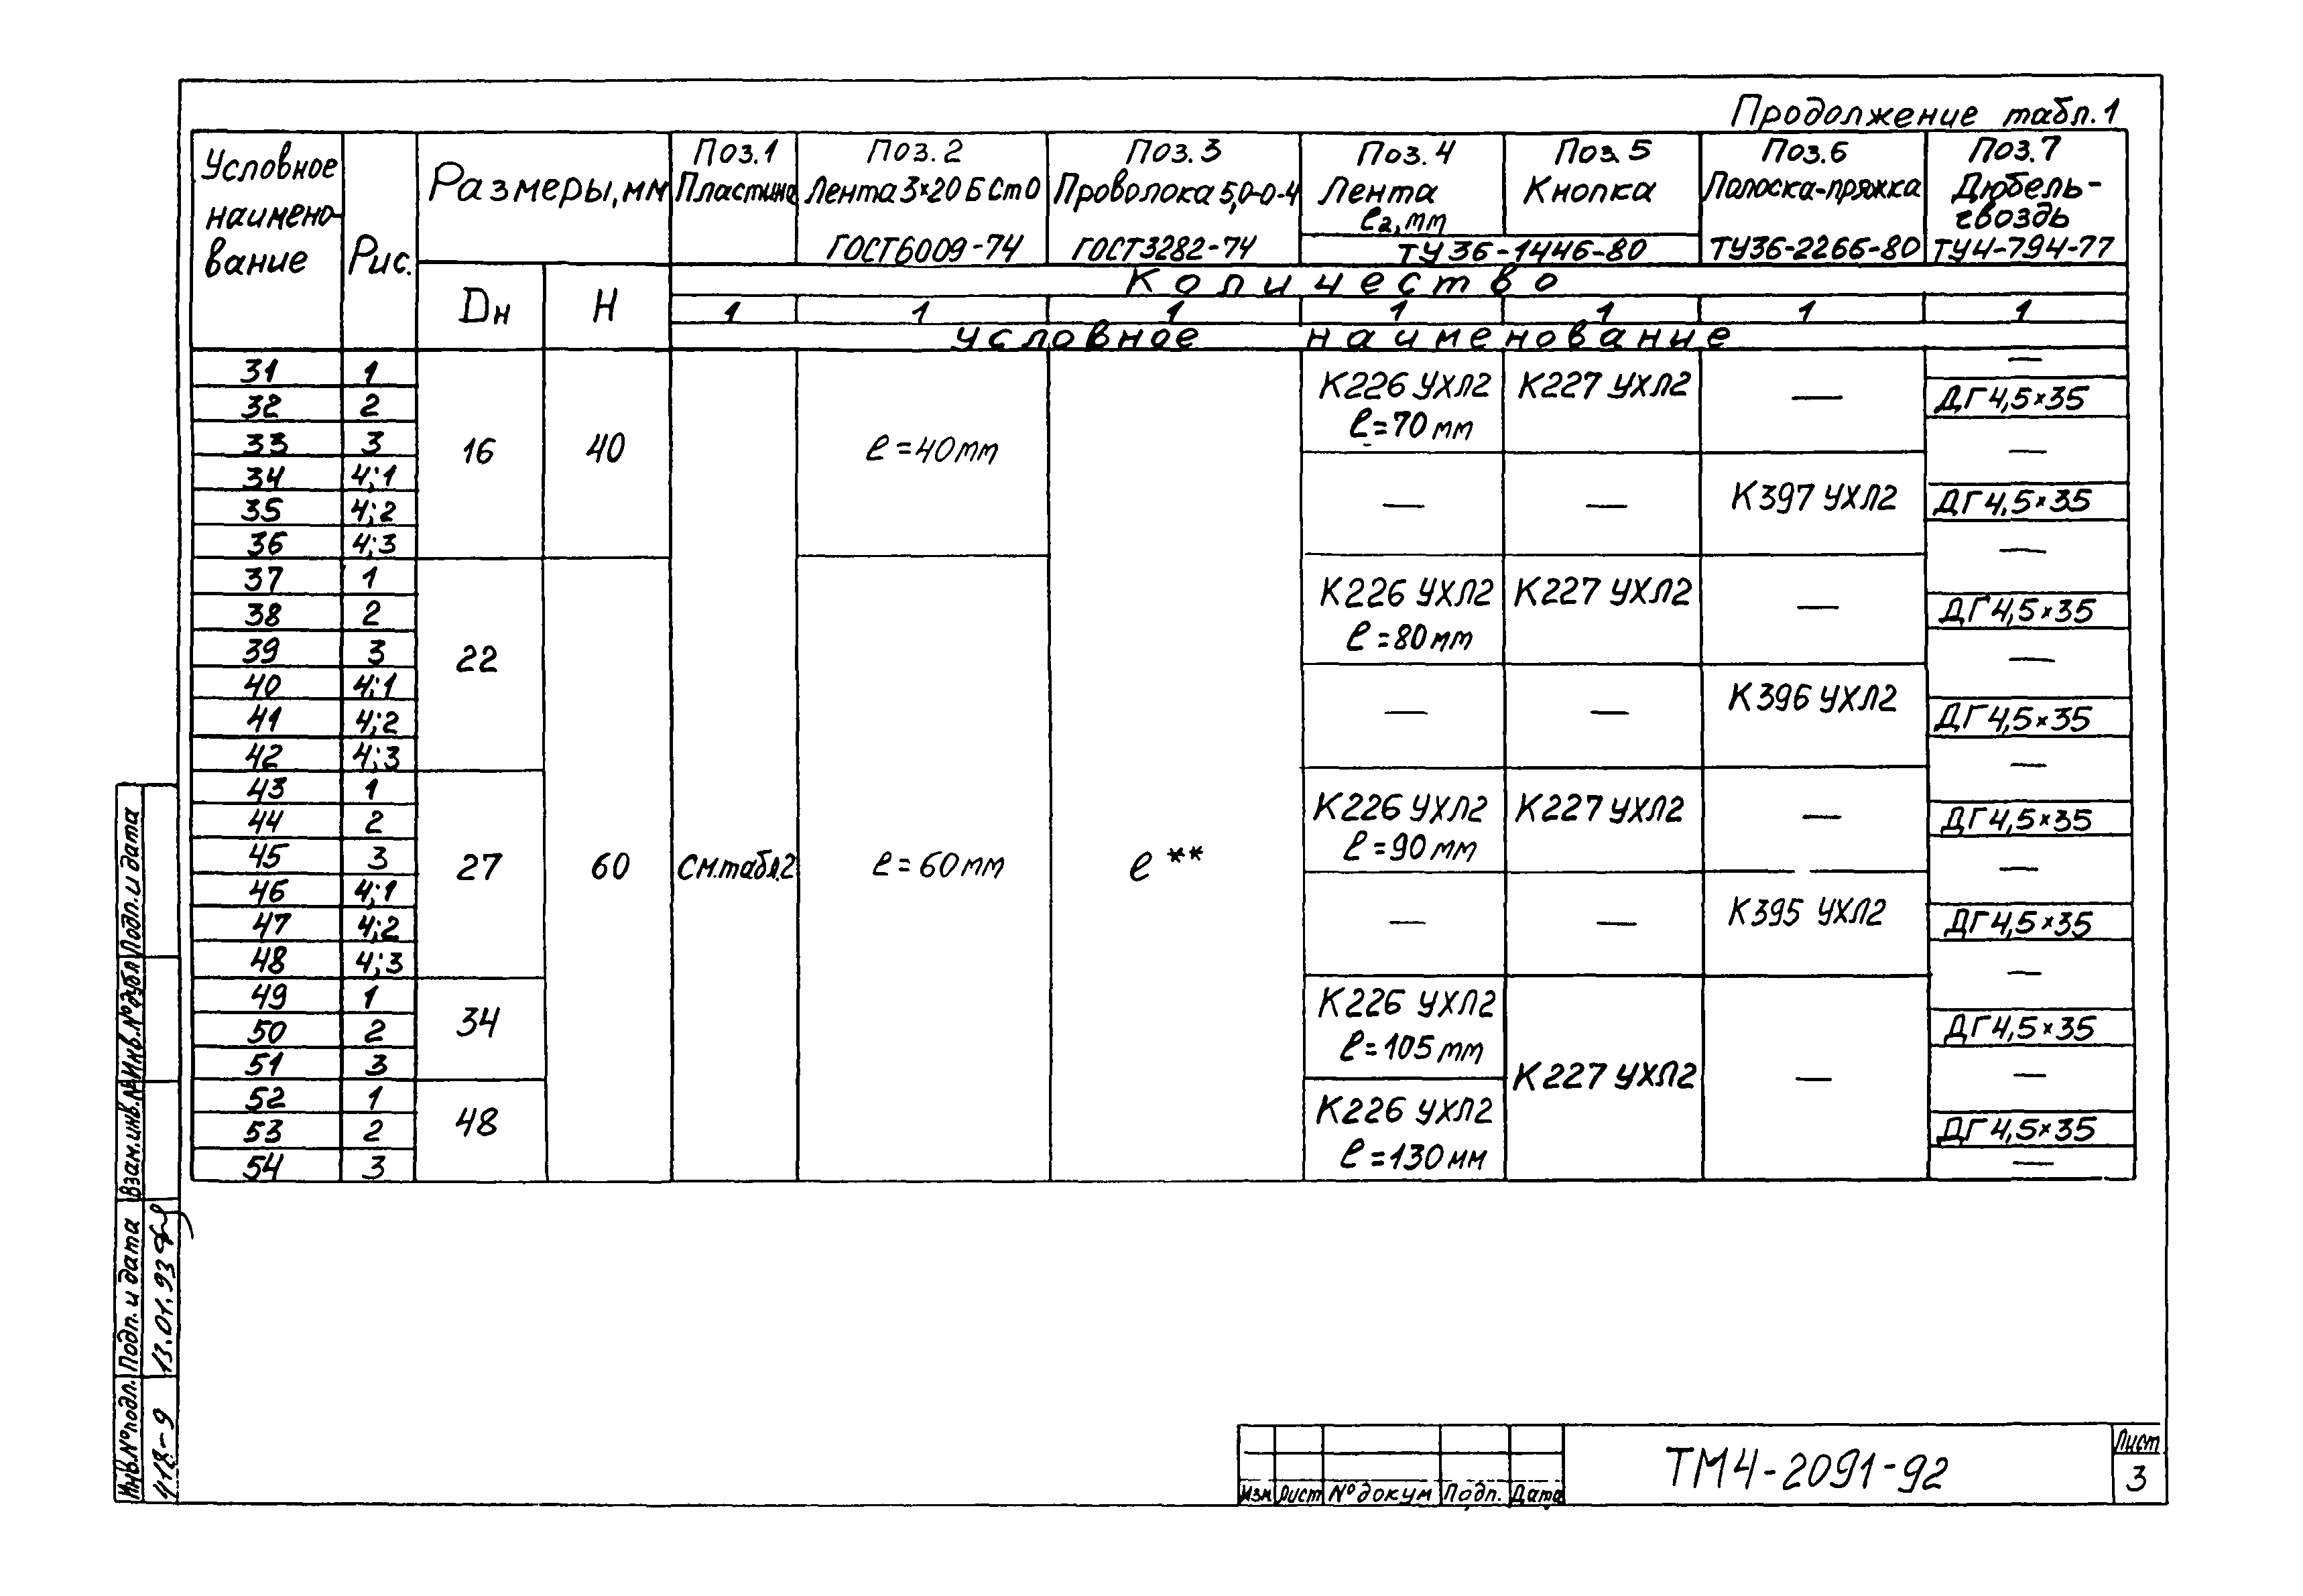 Продолжение табл.1
Условное наимено-вание Рис. Размеры, мм Поз.1 Пластина Поз.2 Лента 3×20 Б Ст0 ГОСТ6009-74 Поз.3 Проволока 5,0-0-4 ГОСТ3282-74 Поз.4 Лента ℓ2, мм Поз.5 Кнопка ТУ36-1446-80 Поз.6 Полоска-пряжка ТУ36-2266-80 Поз.7 Дюбель-гвоздь ТУ4-794-77
Dн H
Количество
1 1 1 1 1 1 1
условное наименование
31 1 —
32 2 К226 УХЛ2 ℓ=70мм К227 УХЛ2 — ДГ4,5×35
33 3 16 40 ℓ=40мм —
34 4;1
35 4;2 — — К397 УХЛ2 ДГ4,5×35
36 4;3 —
37 1
38 2 К226 УХЛ2 ℓ=80мм К227 УХЛ2 — ДГ4,5×35
39 3 22 —
40 4;1
41 4;2 — — К396 УХЛ2 ДГ4,5×35
42 4;3 —
43 1
44 2 К226 УХЛ2 ℓ=90мм К227 УХЛ2 — ДГ4,5×35
45 3 27 60 См.табл.2 ℓ=60мм ℓ** —
46 4;1
47 4;2 — — К395 УХЛ2 ДГ4,5×35
48 4;3 —
49 1
50 2 34 К226 УХЛ2 ℓ=105мм ДГ4,5×35
51 3 К227 УХЛ2 — —
52 1
53 2 48 К226 УХЛ2 ℓ=130мм ДГ4,5×35
54 3 —
Подп. и дата
Инв.№дубл
Взам.инв.№
Подп. и дата 13.01.93
Инв.№подл. 418-9
Изм Лист №докум Подп. Дата
ТМ4-2091-92
Лист
3